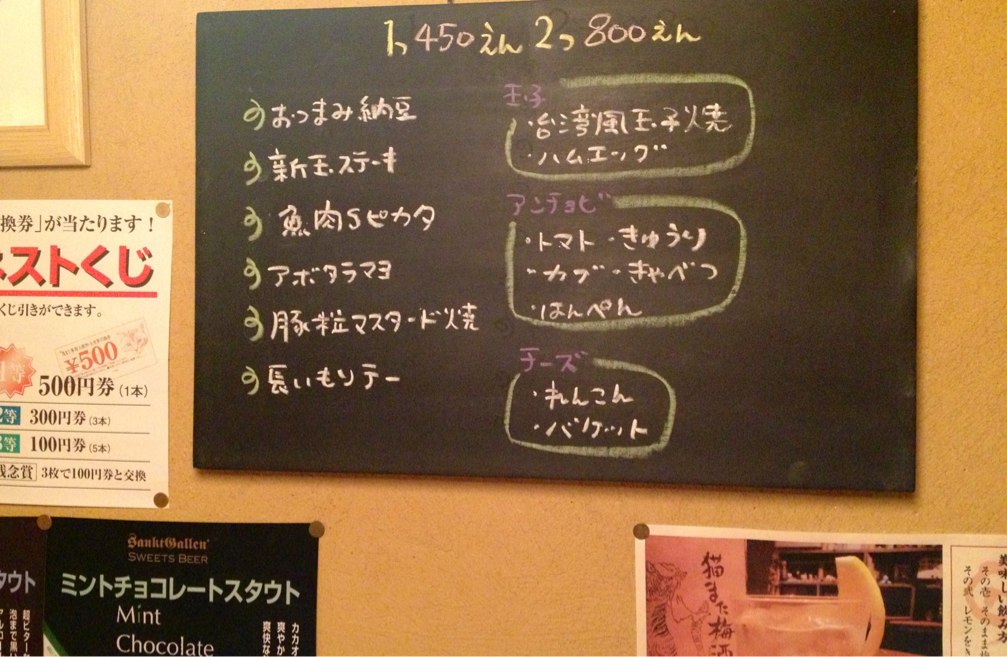 1つ450えん 2つ800えん
おつまみ納豆
新玉ステーキ
魚肉Sピカタ
アボタラマヨ
豚粒マスタード焼
長いもソテー
玉子
・台湾風玉子焼
・ハムエッグ
アンチョビ
・トマト・きゅうり
・カブ・きゃべつ
・はんぺん
チーズ
・れんこん
・バゲット
換券」が当たります!
ストくじ
くじ引きができます。
¥500
500円券(1本)
等 300円券(3本)
等 100円券(5本)
残念賞 3枚で100円券と交換
タウト
Sankt Gallen
SWEETS BEER
ミントチョコレートスタウト
Mint
Chocolate
カカオ
爽やか
爽快な
超ビター
泡まで黒い
アルコ
猫また梅酒
美味しい飲み方
その壱 そのまま
その弐 レモンを